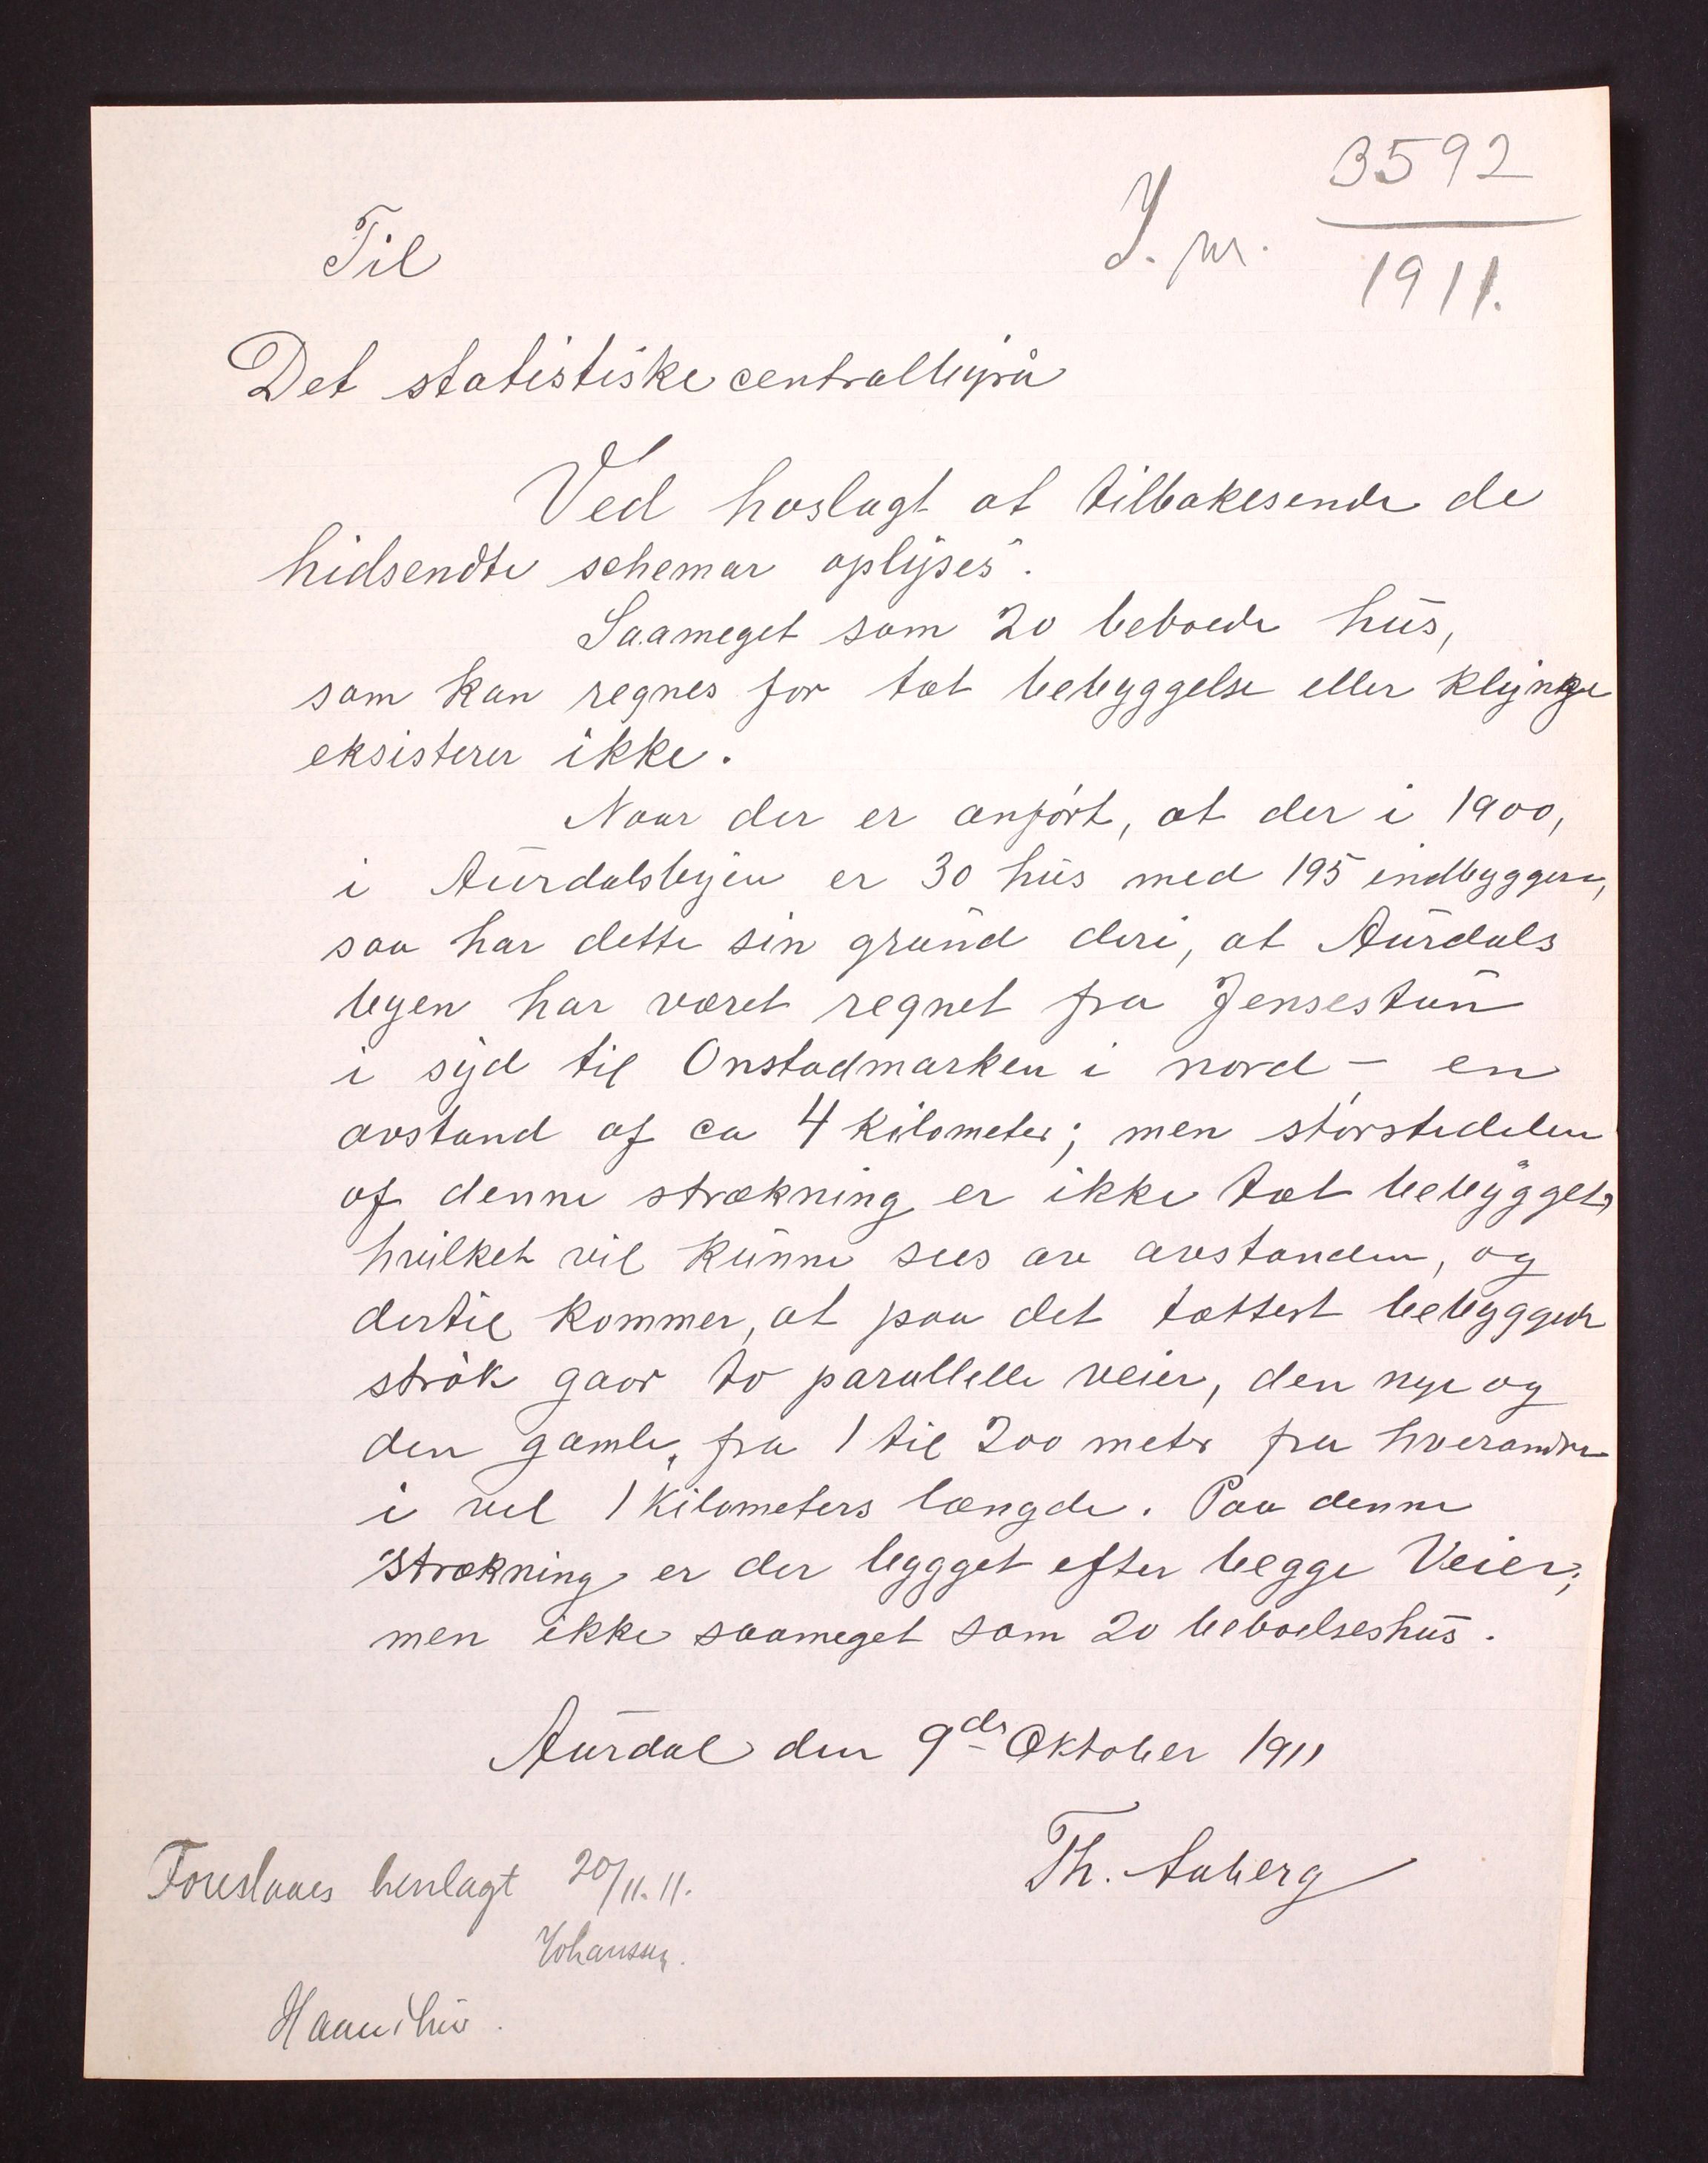 J. nr. 3592
1911.
Til
Det statistiske centralbyrå
Ved hoslagt at tilbakesende de
hidsendte schemar oplyses.
Saameget som 20 beboede hus,
som kan regnes for tæt bebyggelse eller klynge
eksisterer ikke.
Naar der er anført, at der i 1900,
i Aurdalsbyen er 30 hus med 195 indbyggere,
saa har dette sin grund deri, at Aurdals
byen har været regnet fra Jensestun
i syd til Onstadmarken i nord – en
avstand af ca 4 kilometer; men størstedelen
af denne strækning er ikke tæt bebygget,
hvilket vil kunne sees av avstanden, og
dertil kommer, at paa det tættest bebyggede
strøk gaar to parallelle veier, den nye og
den gamle, fra 1 til 200 meter fra hverandre
i vel 1 kilometers længde. Paa denne
strækning er der bygget efter begge Veier;
men ikke saameget som 20 beboelseshus.
Aurdal den 9de Oktober 1911
Th. Aaberg
Foreslaaes henlagt 20/11.11.
Johansen.